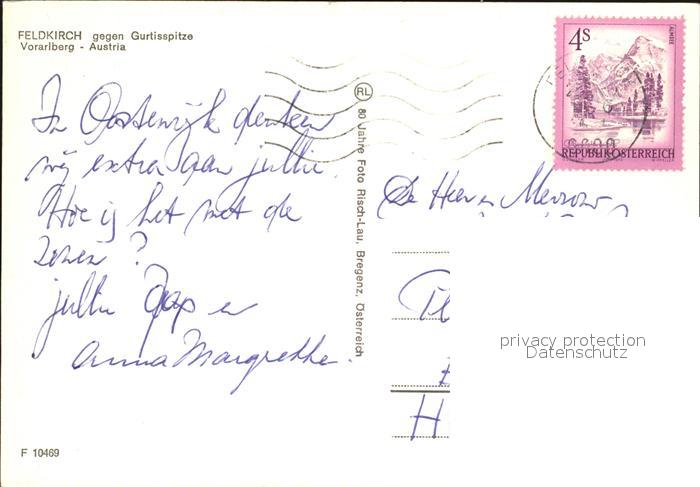 FELDKIRCH gegen Gurtisspitze
Vorarlberg - Austria
In Oostenrijk denken
wij extra aan jullie.
Hoe is het met de
zenen?
jullie Jaap en
Anna Margrethe.
F 10469
RL
80 Jahre Foto Risch-Lau, Bregenz, Österreich
4S
ALMSEE
REPUBLIK ÖSTERREICH
De Heer en Mevrouw
H
privacy protection
Datenschutz